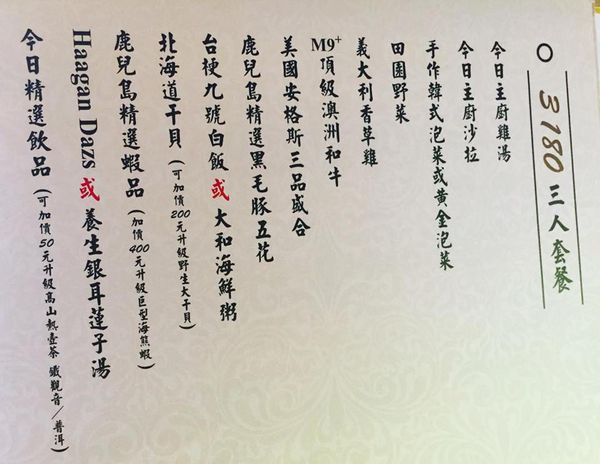 3180 三人套餐
今日主廚雞湯
今日主廚沙拉
手作韓式泡菜或黃金泡菜
田園野菜
義大利香草雞
M9+頂級澳洲和牛
美國安格斯三品盛合
鹿兒島精選黑毛豚五花
台梗九號白飯或大和海鮮粥
北海道干貝(可加價200元升級野生大干貝)
鹿兒島精選蝦品(加價400元升級巨型海熊蝦)
Haagan Dazs或養生銀耳蓮子湯
今日精選飲品(可加價50元升級高山熱壺茶 鐵觀音/普洱)